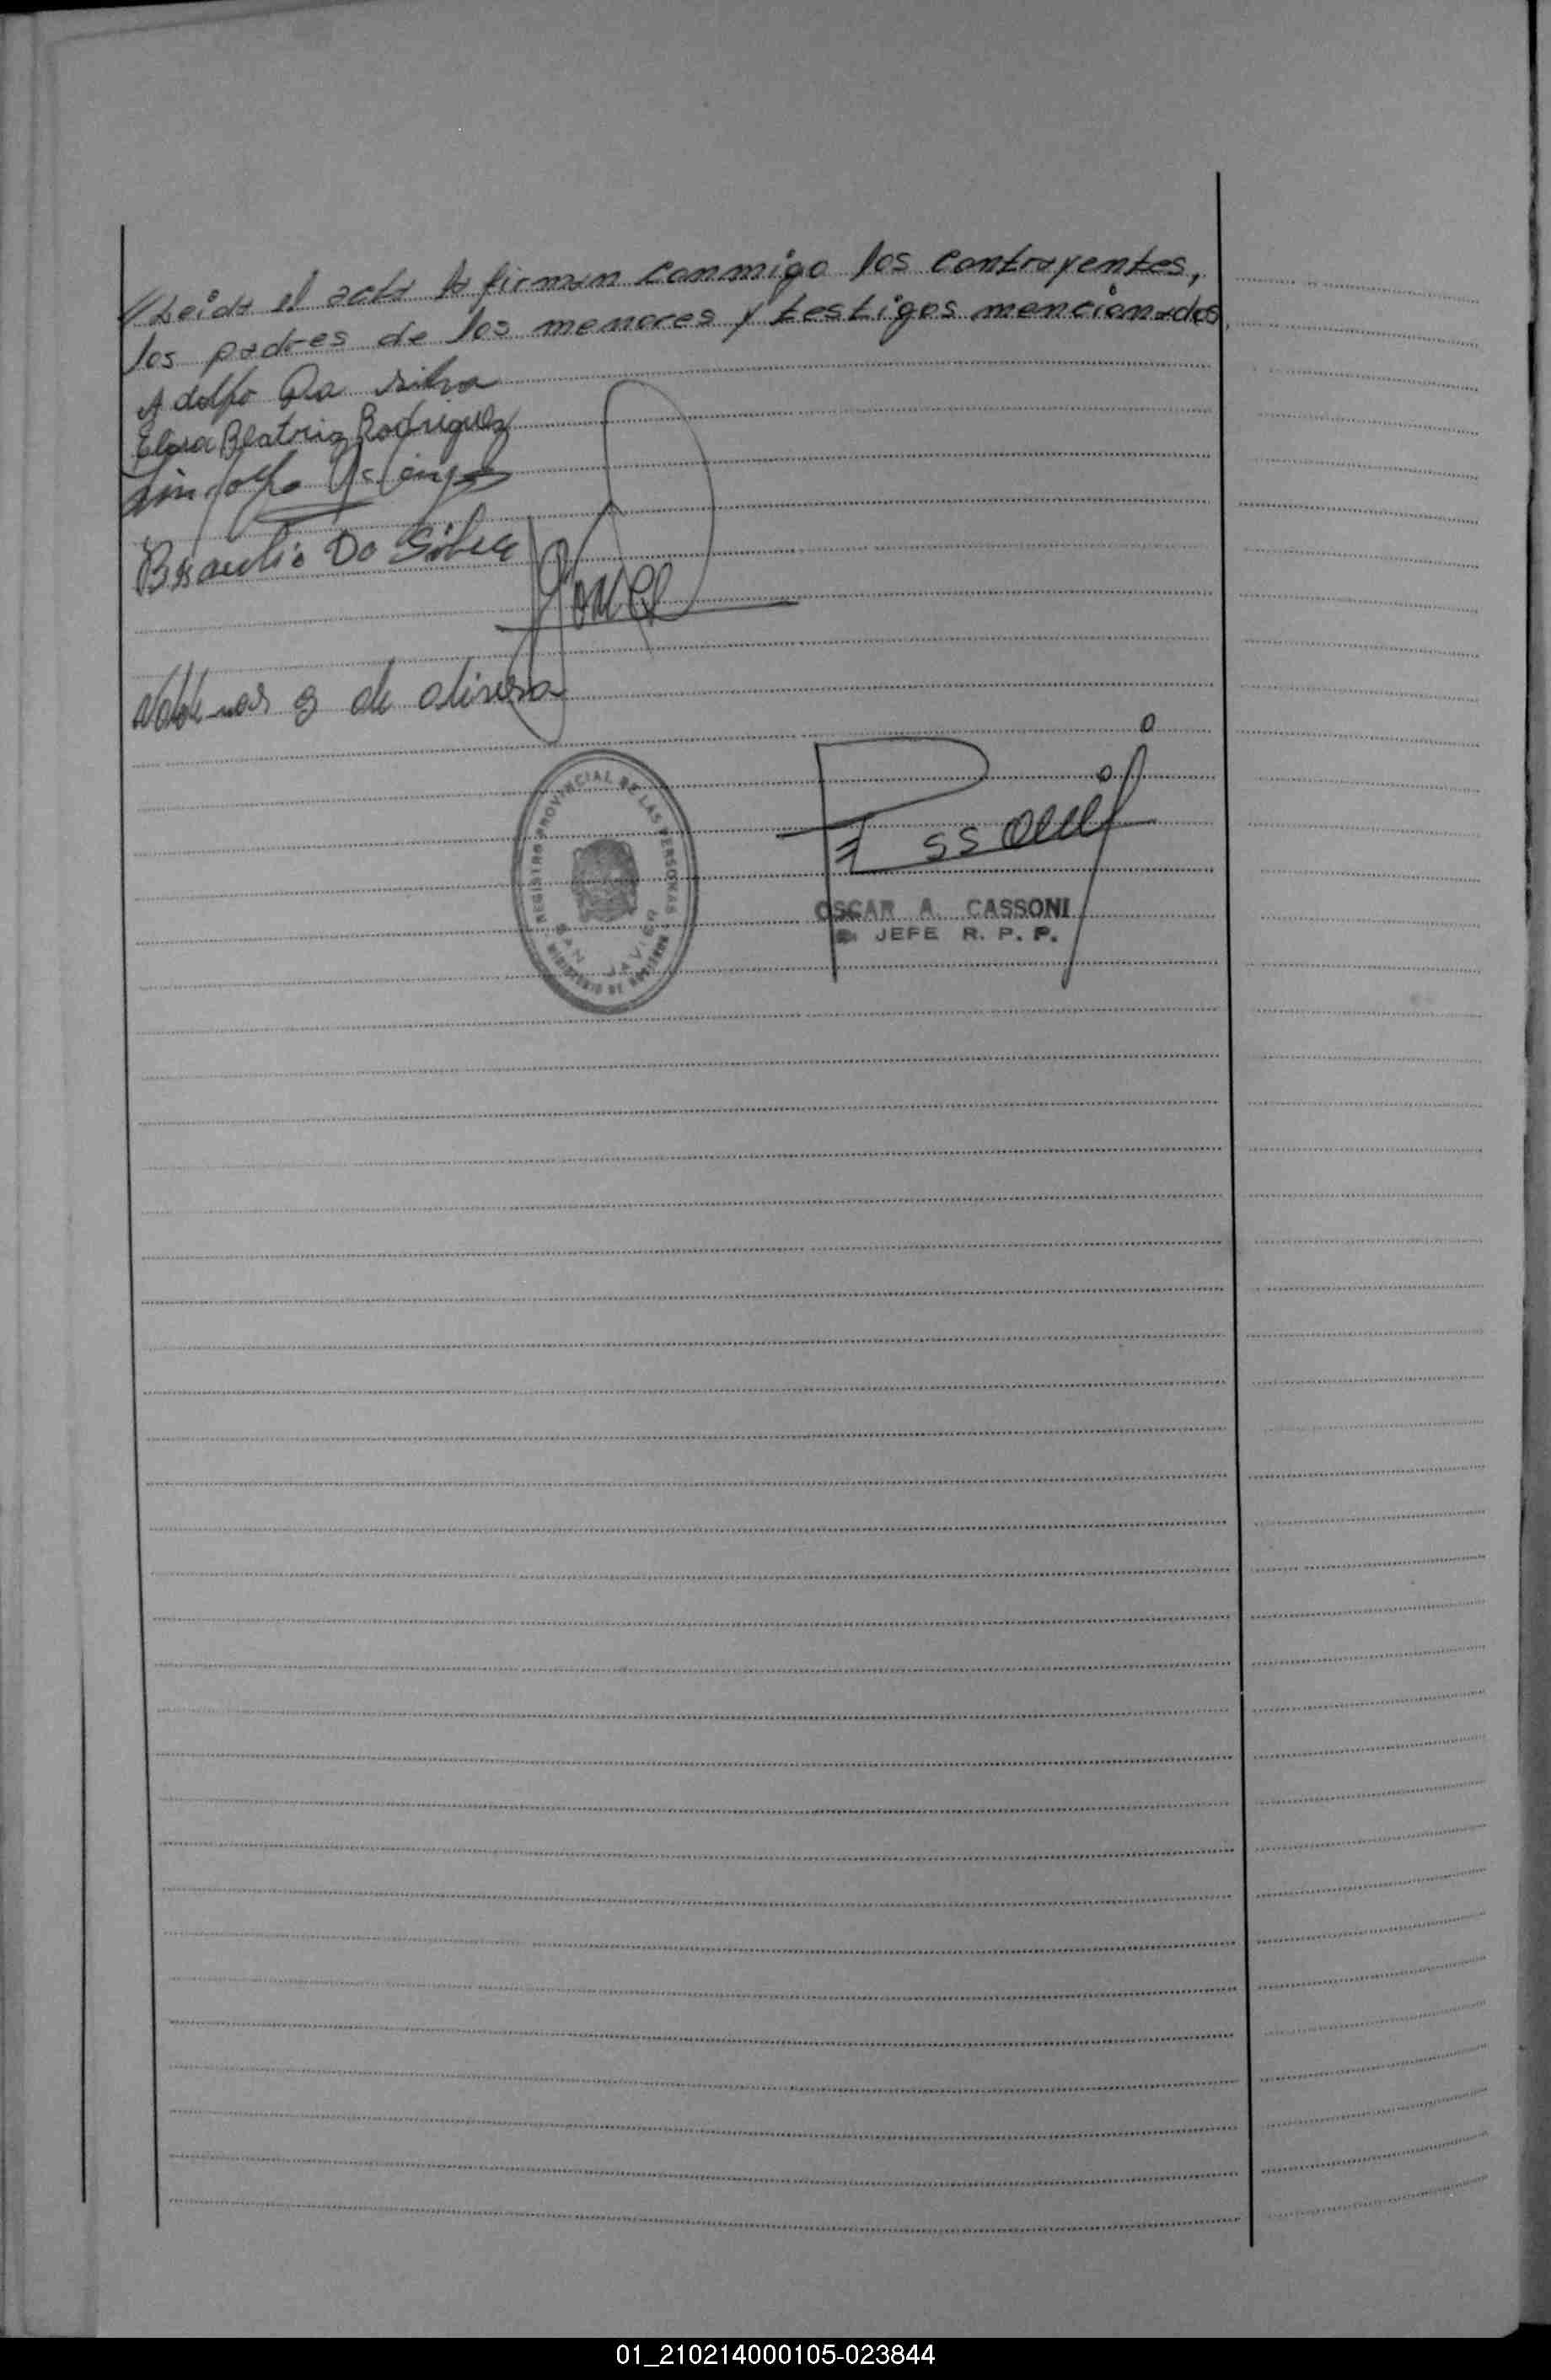 // Leida el acta la firman conmmigo los contrayentes,
los padres de los menores y testigos mencionados.
Adolfo Da silva
Elsa Beatriz Rodriguez
Lindolfo
Braulio Da Silva
de olivera
REGISTRO PROVINCIAL DE LAS PERSONAS
SAN JAVIER
MINISTERIO DE GOBIERNO
OSCAR A. CASSONI
JEFE R. P. P.
01_210214000105-023844